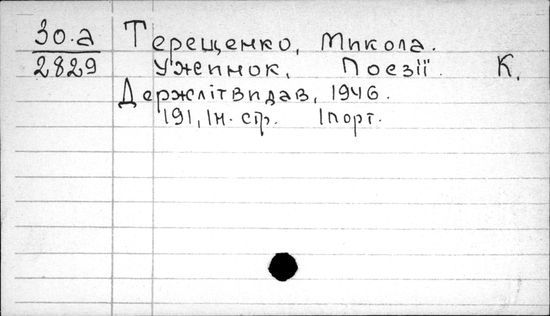 30.а Терещенко, Микола.
2829 Ужинок. Поезії. К.
Держлітвидав, 1946.
191, Iн. стр. Iпорт.